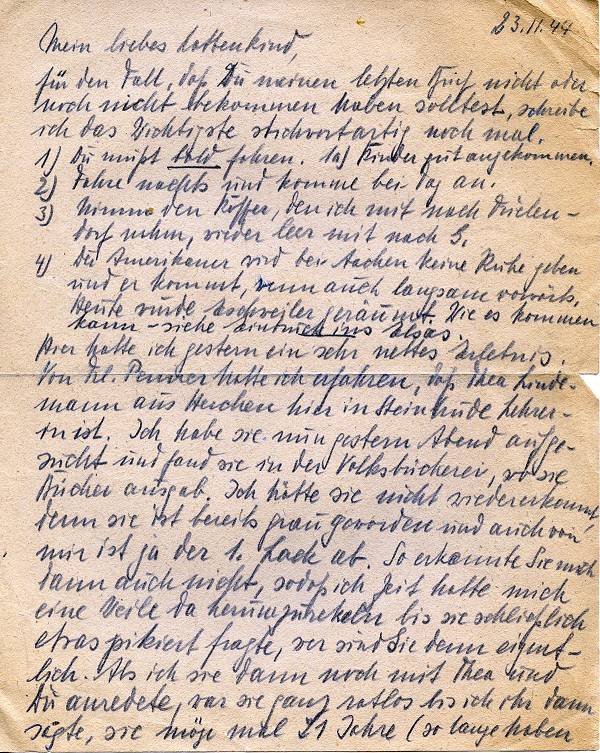 23.11.44
Mein liebes Lottenkind,
für den Fall, daß Du meinen letzten Brief nicht oder
noch nicht bekommen haben solltest, schreibe
ich das Wichtigste stichwortartig noch mal.
1) Du mußt bald fahren. 1a) Kinder gut angekommen.
2) Fahre nachts und komme bei Tag an.
3) Nimm den Koffer, den ich mit nach
dorf nahm, wieder leer mit nach S.
4) Der Amerikaner wird bei Aachen keine Ruhe geben
und er kommt, wenn auch langsam vorwärts.
Heute wurde Eschweiler geräumt. Wie es kommen
kann – siehe Einbruch ins Elsas.
Hier hatte ich gestern ein sehr nettes Erlebnis.
Von Frl. hatte ich erfahren, daß Thea Linde-
mann aus Herchen hier in Steinhude Lehrer-
in ist. Ich habe sie nun gestern Abend aufge-
sucht und fand sie in der Volksbücherei, wo sie
Bücher ausgab. Ich hätte sie nicht wiedererkannt,
denn sie ist bereits grau geworden und auch von
mir ist ja der 1. Lack ab. So erkannte Sie mich
dann auch nicht, sodaß ich Zeit hatte mich
eine Weile da herumzurekeln bis sie schließlich
etwas pikiert fragte, wer sind Sie denn eigent-
lich. Als ich sie dann noch mit Thea und
Du anredete, war sie ganz ratlos bis ich ihr dann
sagte, sie möge mal 21 Jahre (so lange haben